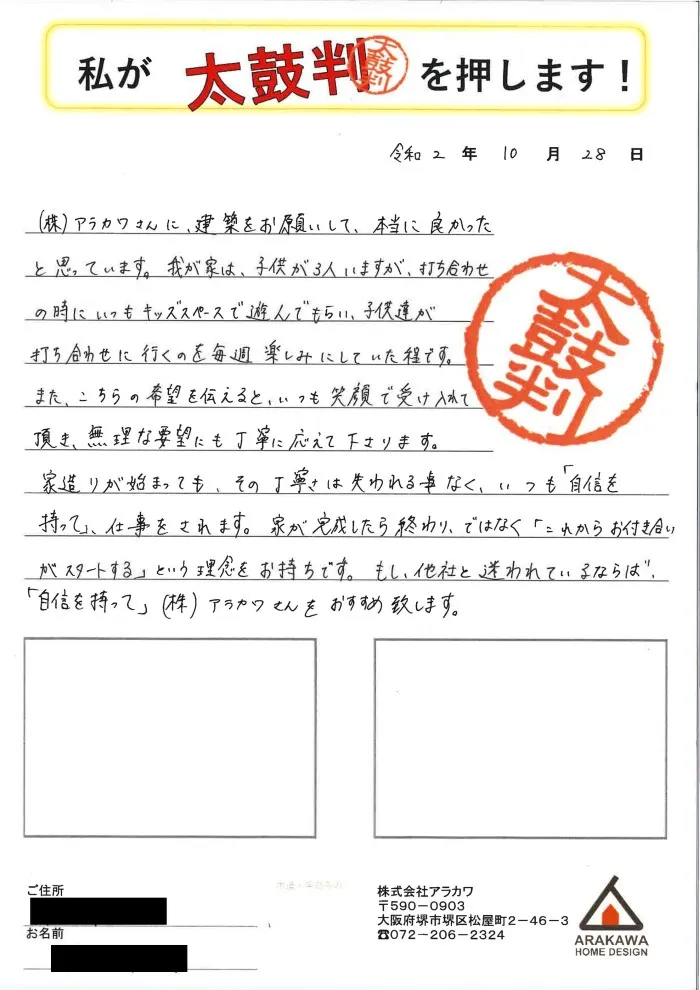 私が 太鼓判 太鼓判 を押します！
令和 2 年 10 月 28 日
(株)アラカワさんに、建築をお願いして、本当に良かった
と思っています。我が家は、子供が3人いますが、打ち合わせ
の時にいつもキッズスペースで遊んでもらい、子供達が
打ち合わせに行くのを毎週楽しみにしていた程です。
また、こちらの希望を伝えると、いつも笑顔で受け入れて
頂き、無理な要望にも丁寧に応えて下さります。
太鼓判
家造りが始まっても、その丁寧さは失われる事なく、いつも「自信を
持って」、仕事をされます。家が完成したら終わり、ではなく「これからお付き合い
がスタートする」という理念をお持ちです。もし、他社と迷われているならば、
「自信を持って」(株)アラカワさんをおすすめ致します。
ご住所
お名前
株式会社アラカワ
〒590-0903
大阪府堺市堺区松屋町2-46-3
☎072-206-2324
ARAKAWA
HOME DESIGN